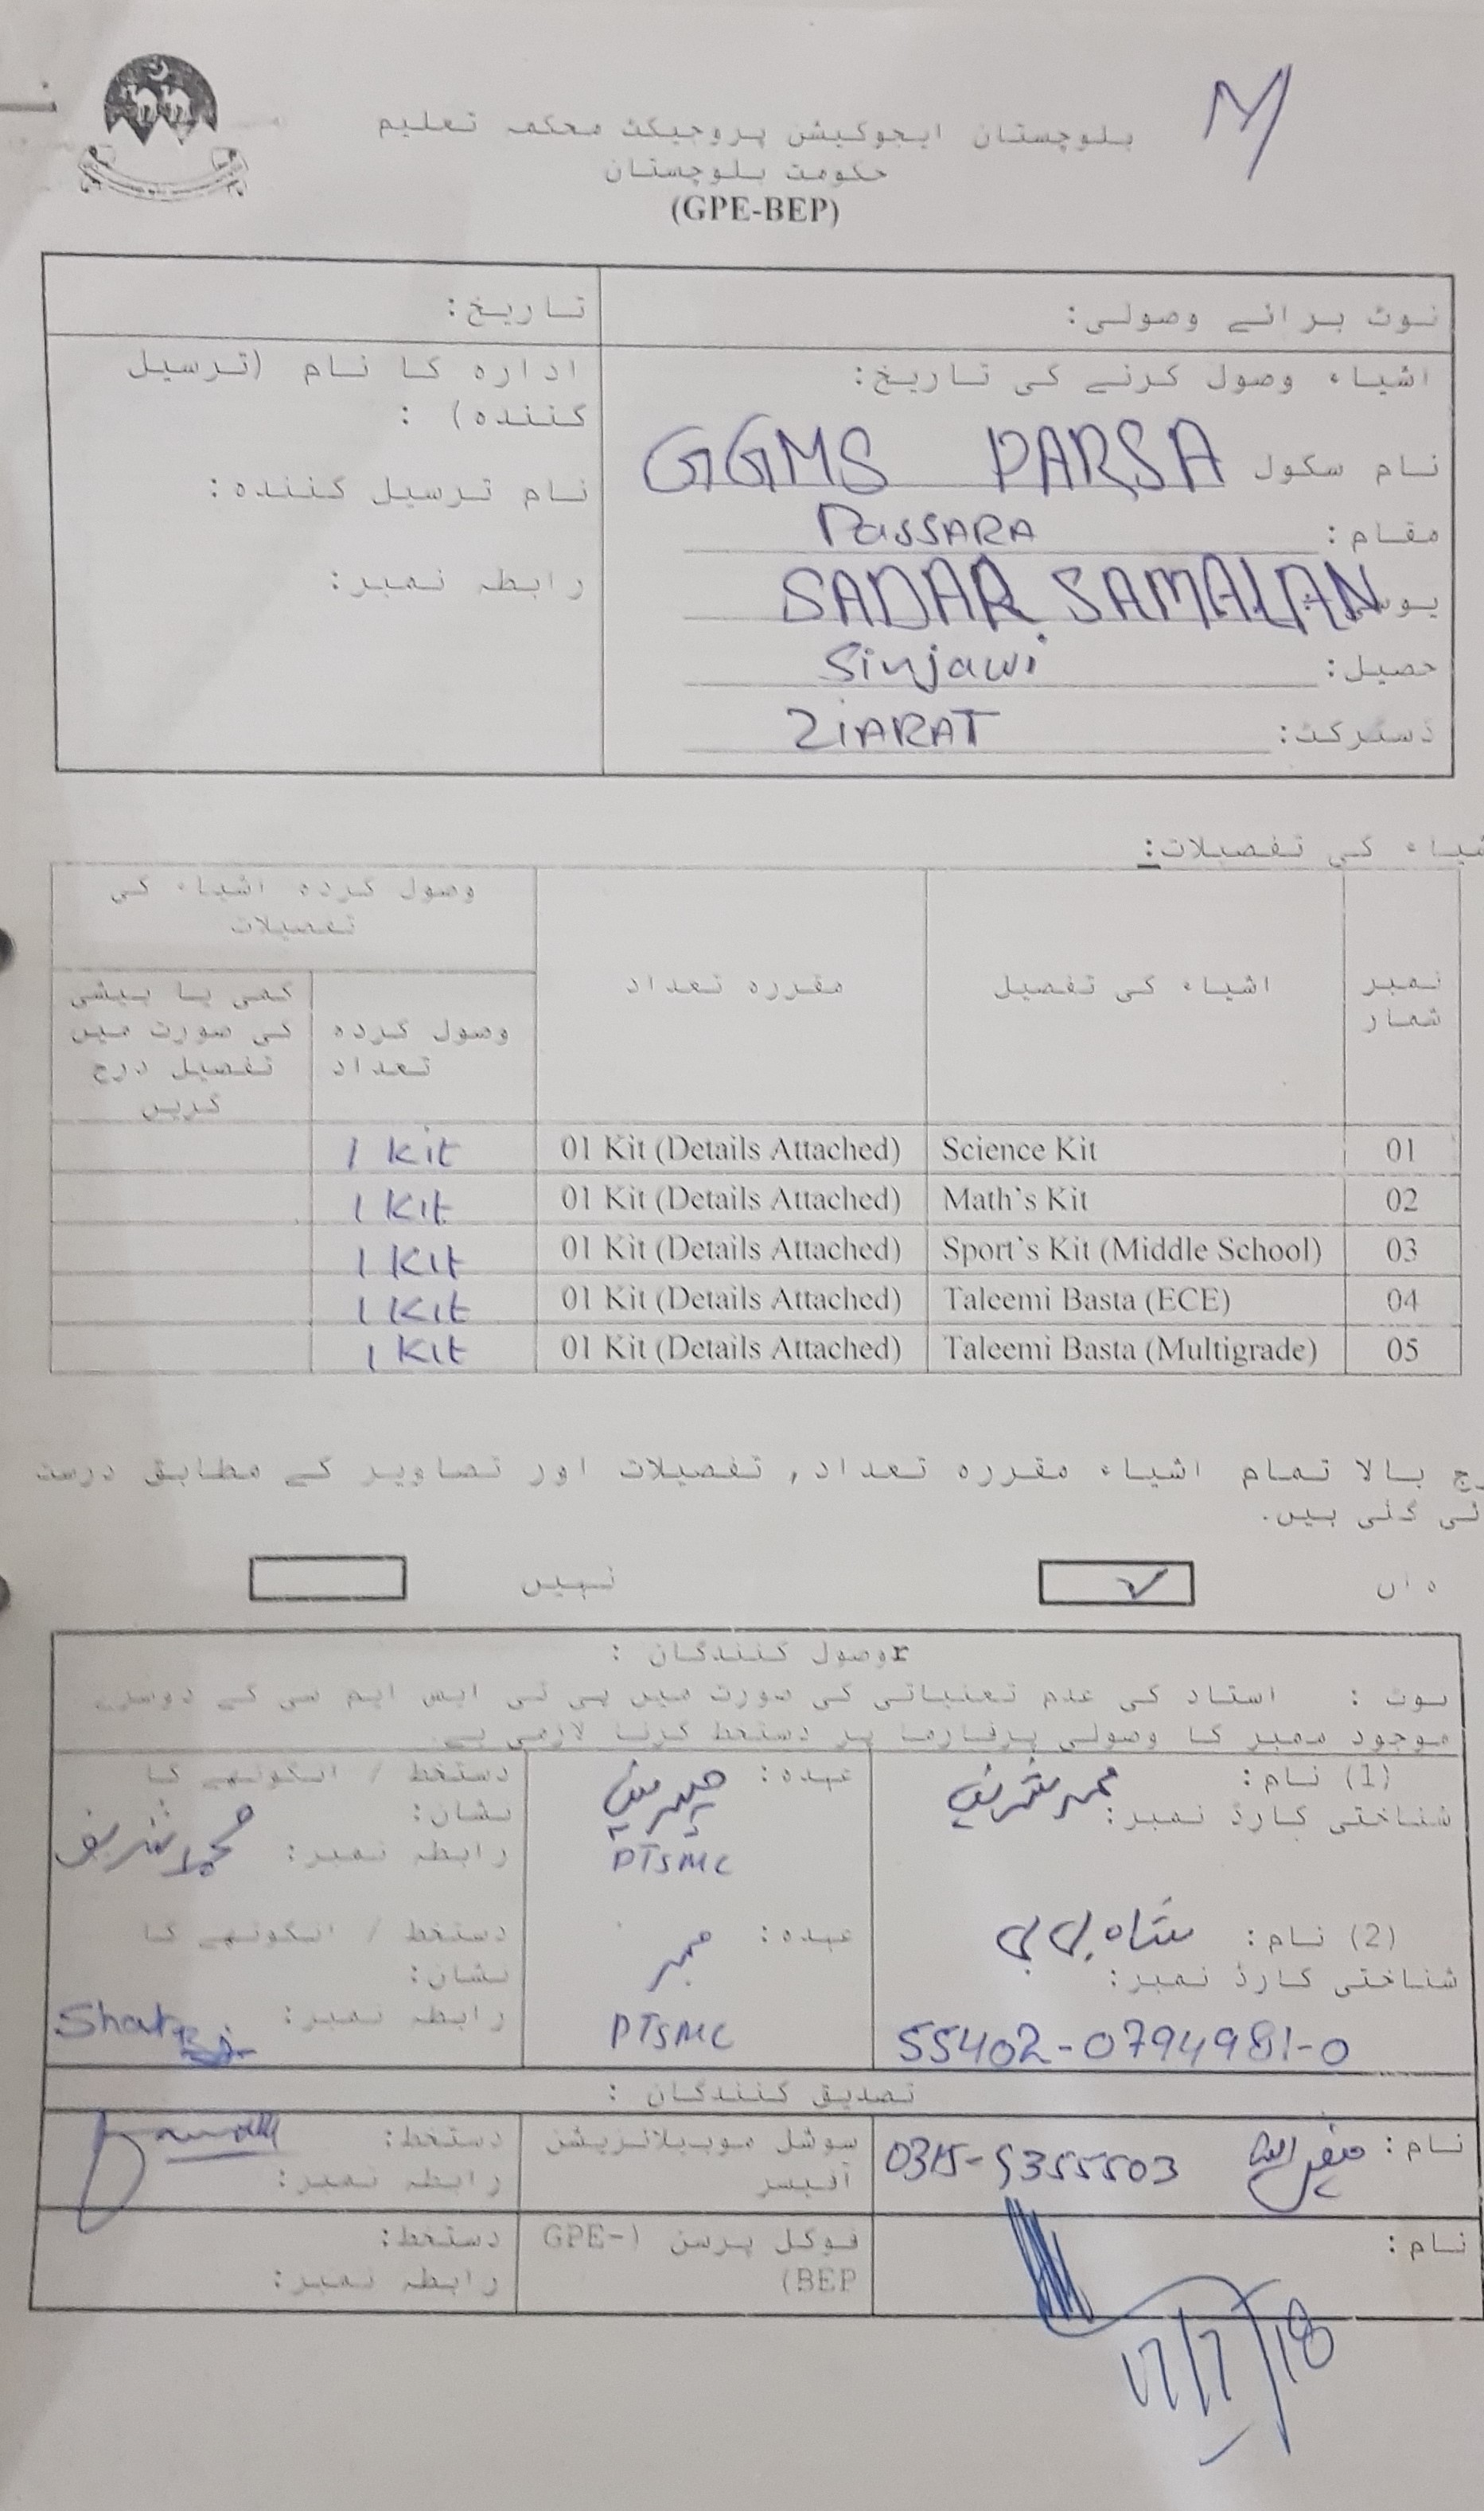 M
بلوچستان ایجوکیشن پروجیکٹ محکمہ تعلیم
حکومت بلوچستان
(GPE-BEP)
نوٹ برائے وصولی:
تاریخ:
اشیاء وصول کرنے کی تاریخ:
نام سکول GGMS PARSA
مقام: PaSSARA
یو SADAR SAMALAN
حصیل: Sinjawi
ڈسٹرکٹ: ZIARAT
ادارہ کا نام (ترسیل
کنندہ) :
نام ترسیل کنندہ:
رابطہ نمبر:
یاء کی تفصیلات:
نمبر شمار
اشیاء کی تفصیل
مقررہ تعداد
وصول کردہ اشیاء کی
تفصیلات
وصول کردہ تعداد
کمی یا بیشی
کی صورت میں
تفصیل درج
کریں
01 Science Kit 01 Kit (Details Attached) 1 Kit
02 Math's Kit 01 Kit (Details Attached) 1 Kit
03 Sport's Kit (Middle School) 01 Kit (Details Attached) 1 Kit
04 Taleemi Basta (ECE) 01 Kit (Details Attached) 1 Kit
05 Taleemi Basta (Multigrade) 01 Kit (Details Attached) 1 Kit
رج بالا تمام اشیاء مقررہ تعداد, تفصیلات اور تصاویر کے مطابق درست
ئی گئی ہیں.
ہاں ✓ نہیں
rوصول کنندگان :
نوٹ : استاد کی عدم تعنیاتی کی صورت میں پی ٹی ایس ایم سی کے دوسرے
موجود ممبر کا وصولی پرفارما پر دستخط کرنا لازمی ہے.
(1) نام: محمد شریف
شناختی کارڈ نمبر:
عہدہ: چیرمین
PTSMC
دستخط / انگوٹھے کا
نشان:
رابطہ نمبر: محمد شریف
(2) نام: شاہ بی بی
شناختی کارڈ نمبر:
55402-0794981-0
عہدہ: ممبر
PTSMC
دستخط / انگوٹھے کا
نشان:
رابطہ نمبر:
تصدیق کنندگان :
نام: 0315-9355503
سوشل موبیلائزیشن
آفیسر
دستخط:
رابطہ نمبر:
نام:
فوکل پرسن (GPE-
BEP)
دستخط:
رابطہ نمبر:
17/7/18